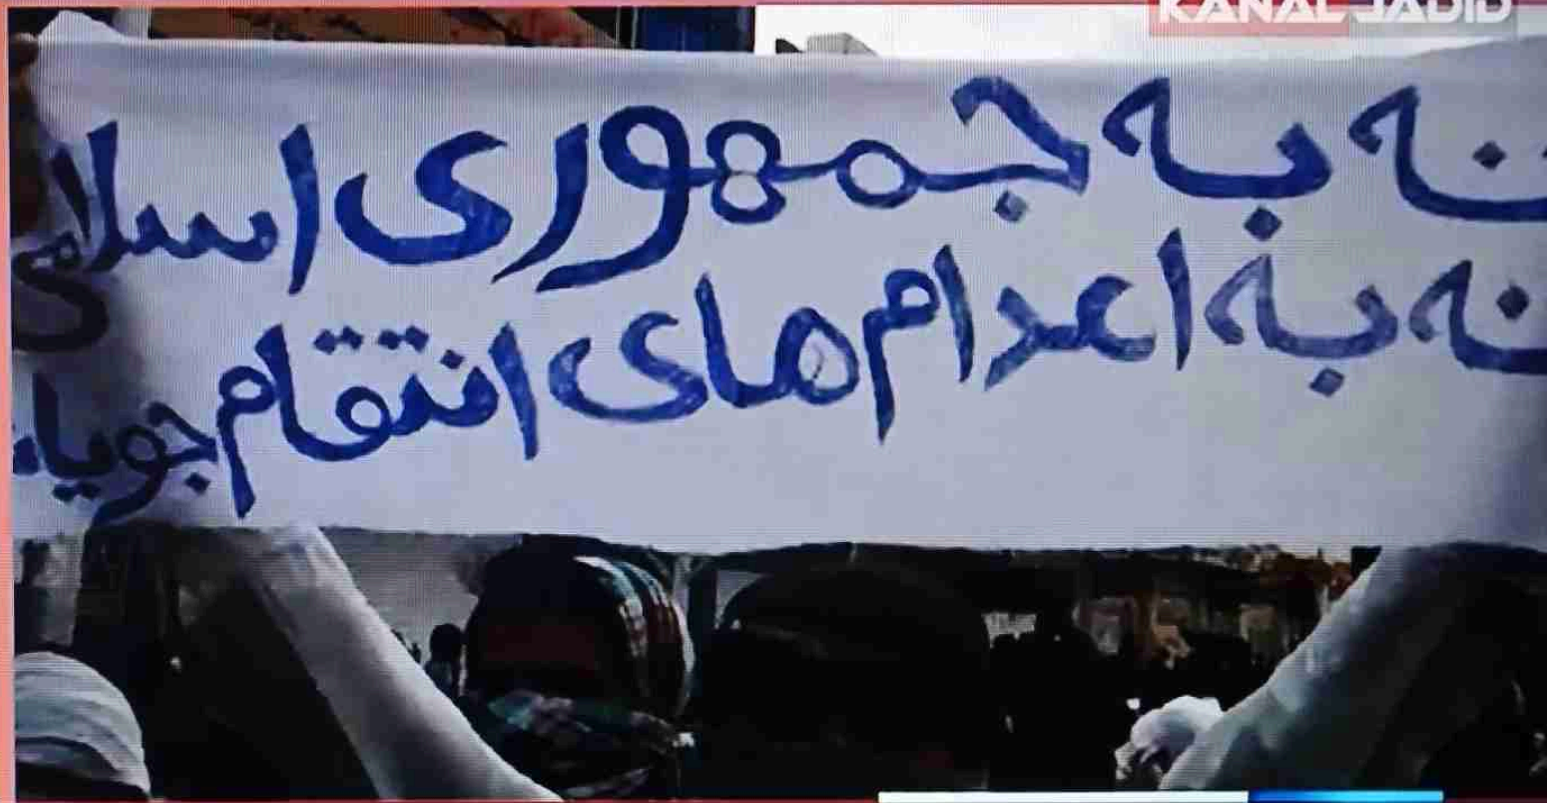 KANAL JADID
نه به جمهوری اسلامی
نه به اعدام های انتقام جویا